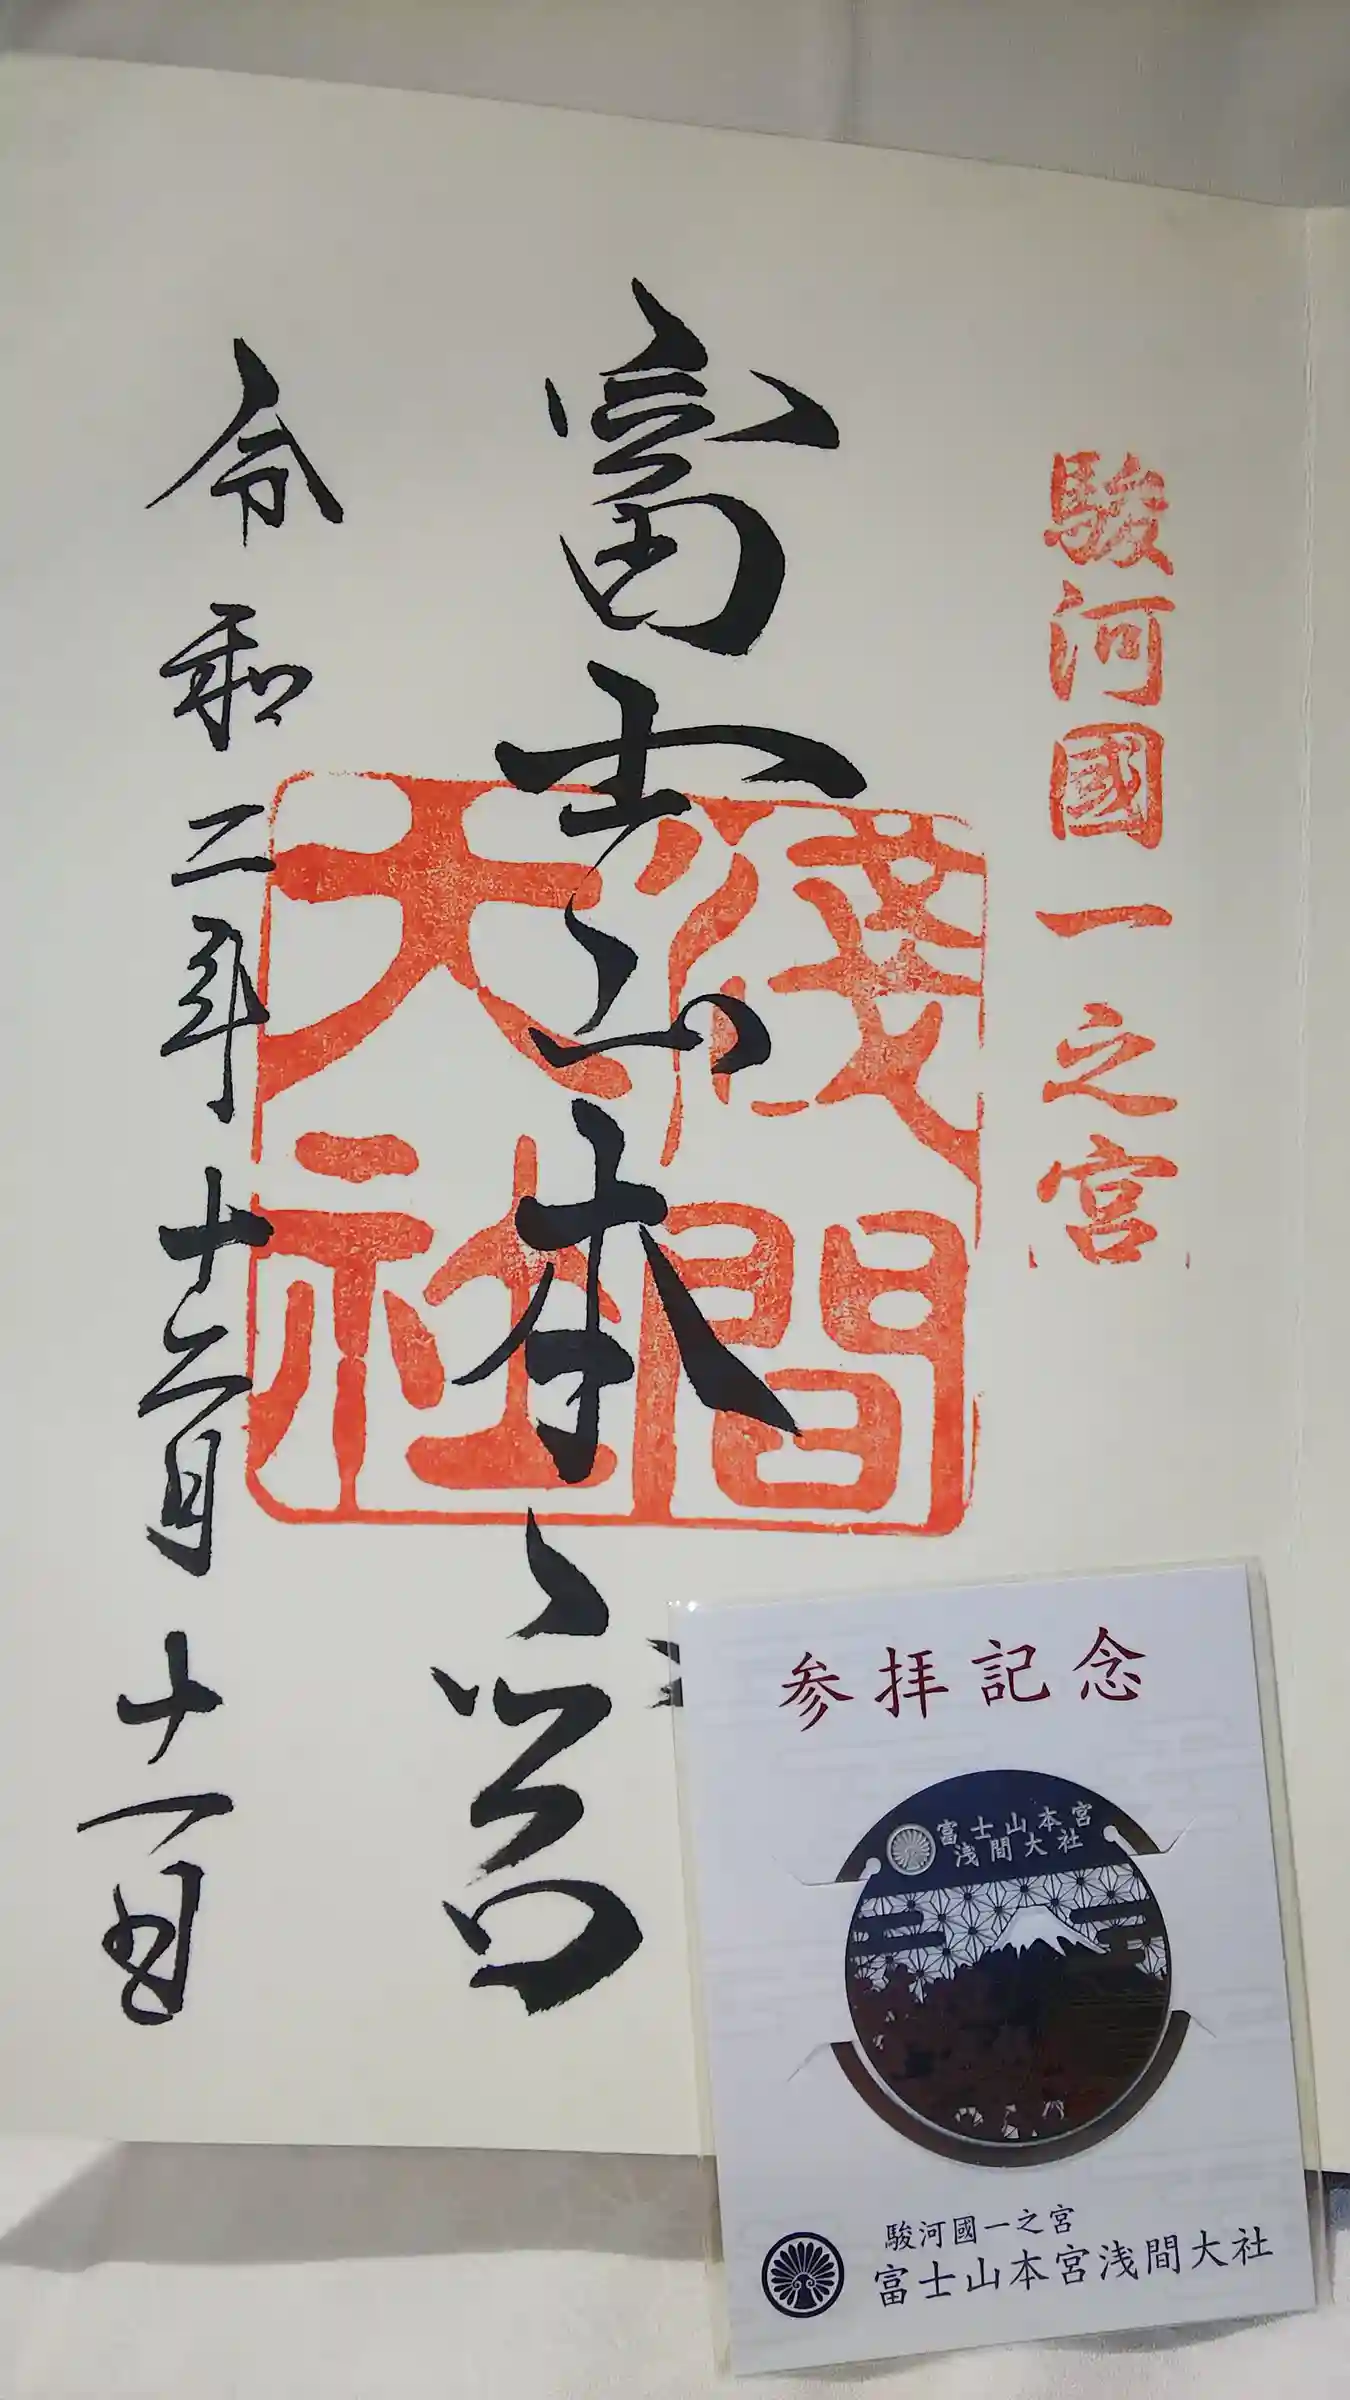 駿河國一之宮
富士山本宮
淺間大社
令和二年十二月十一日
参拝記念
富士山本宮
浅間大社
駿河國一之宮
富士山本宮浅間大社